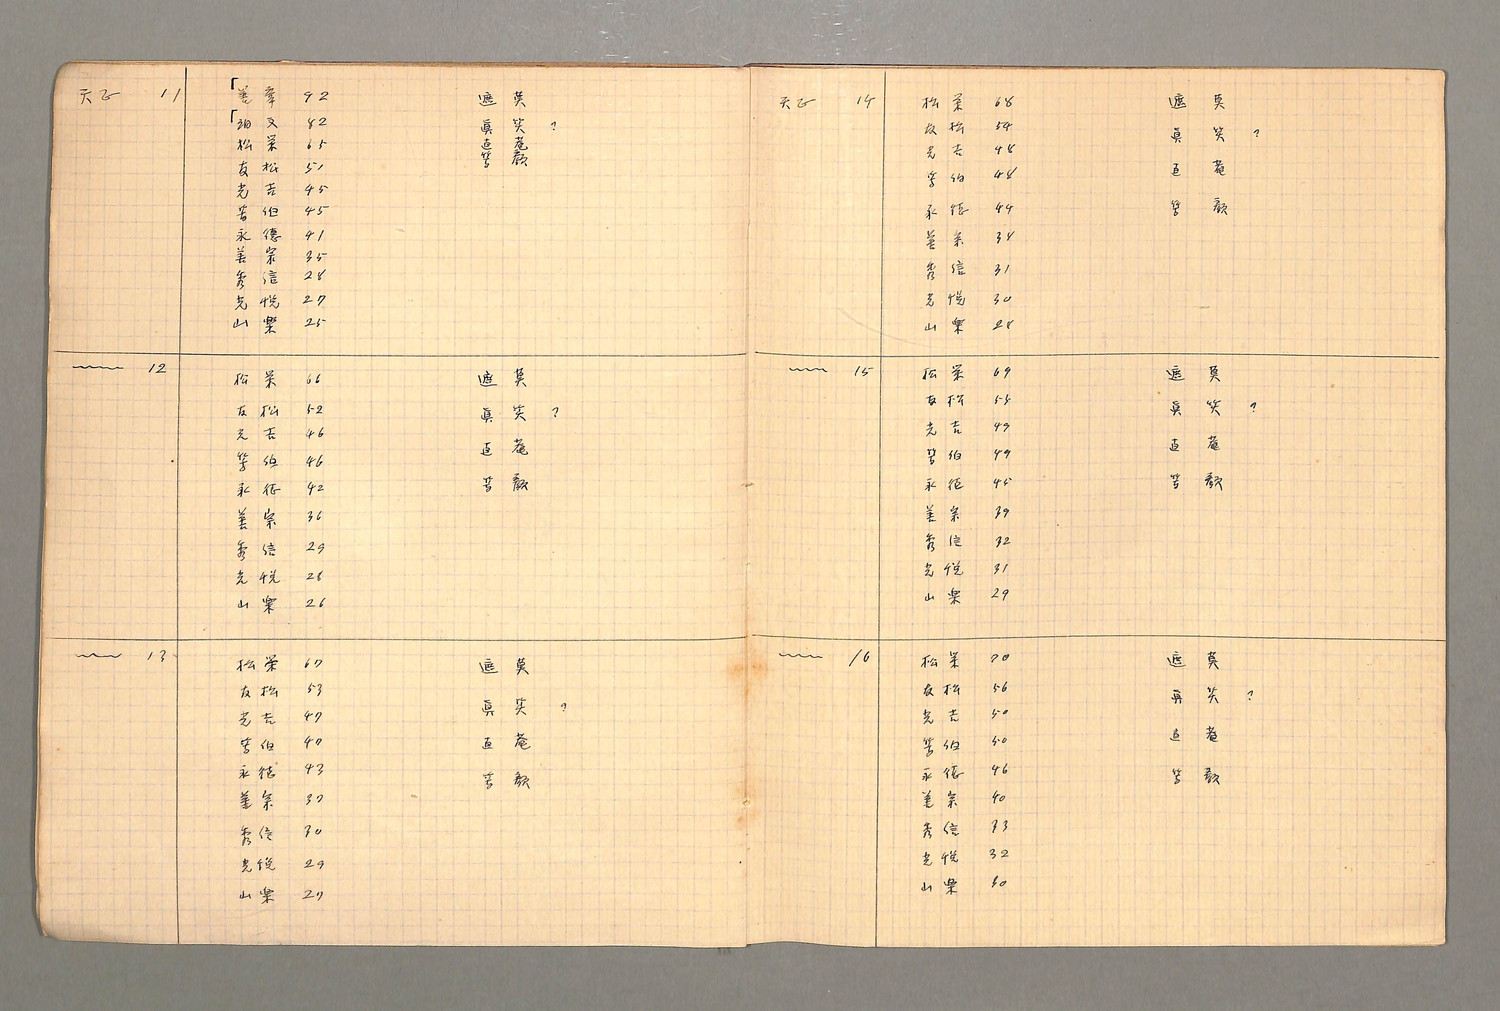 天正 11
「善幸 92 遮莫
「珀文 82 眞笑 ?
松栄 65 直菴
友松 51 等顔
光吉 45
等伯 45
永德 41
善宗 35
秀信 28
光悦 27
山樂 25
〜〜 12
松栄 66 遮莫
友松 52 眞笑 ?
光吉 46 直菴
等伯 46 等顔
永德 42
善宗 36
秀信 29
光悦 28
山樂 26
〜〜 13
松栄 67 遮莫
友松 53 眞笑 ?
光吉 47 直菴
等伯 47 等顔
永德 43
善宗 37
秀信 30
光悦 29
山樂 27
天正 14
松栄 68 遮莫
友松 54 眞笑 ?
光吉 48 直菴
等伯 48 等顔
永德 44
善宗 38
秀信 31
光悦 30
山樂 28
〜〜 15
松栄 69 遮莫
友松 55 眞笑 ?
光吉 49 直菴
等伯 49 等顔
永德 45
善宗 39
秀信 32
光悦 31
山樂 29
〜〜 16
松栄 70 遮莫
友松 56 眞笑 ?
光吉 50 直菴
等伯 50 等顔
永德 46
善宗 40
秀信 33
光悦 32
山樂 30